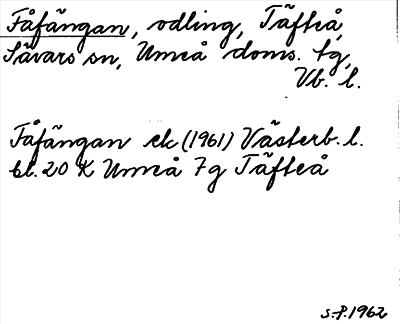 Fåfängan, odling, Täfteå,
Sävars sn, Umeå doms. tg,
Vb. l.
Fåfängan ek (1961) Västerb. l.
bl. 20 K Umeå 7g Täfteå
S.P. 1962